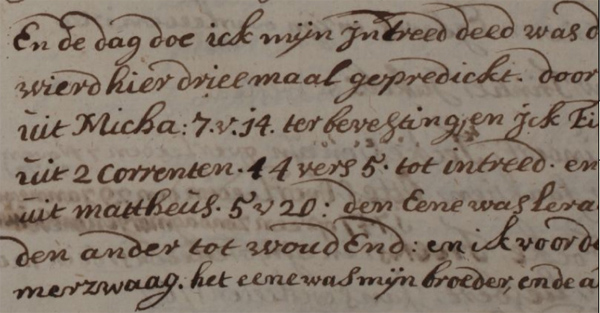 En de dag doe ick mijn Intreed deed was d
wierd hier driemaal gepredickt. door
uit Micha: 7. v. 14. ter bevesting, en Jck Ei
uit 2 Correnten. 4 4 vers 5. tot intreed. en
uit mattheüs. 5 v 20: den Eene was lera
den ander tot woud End: en ik voord
merzwaag. het eene was mijn broeder, en de a